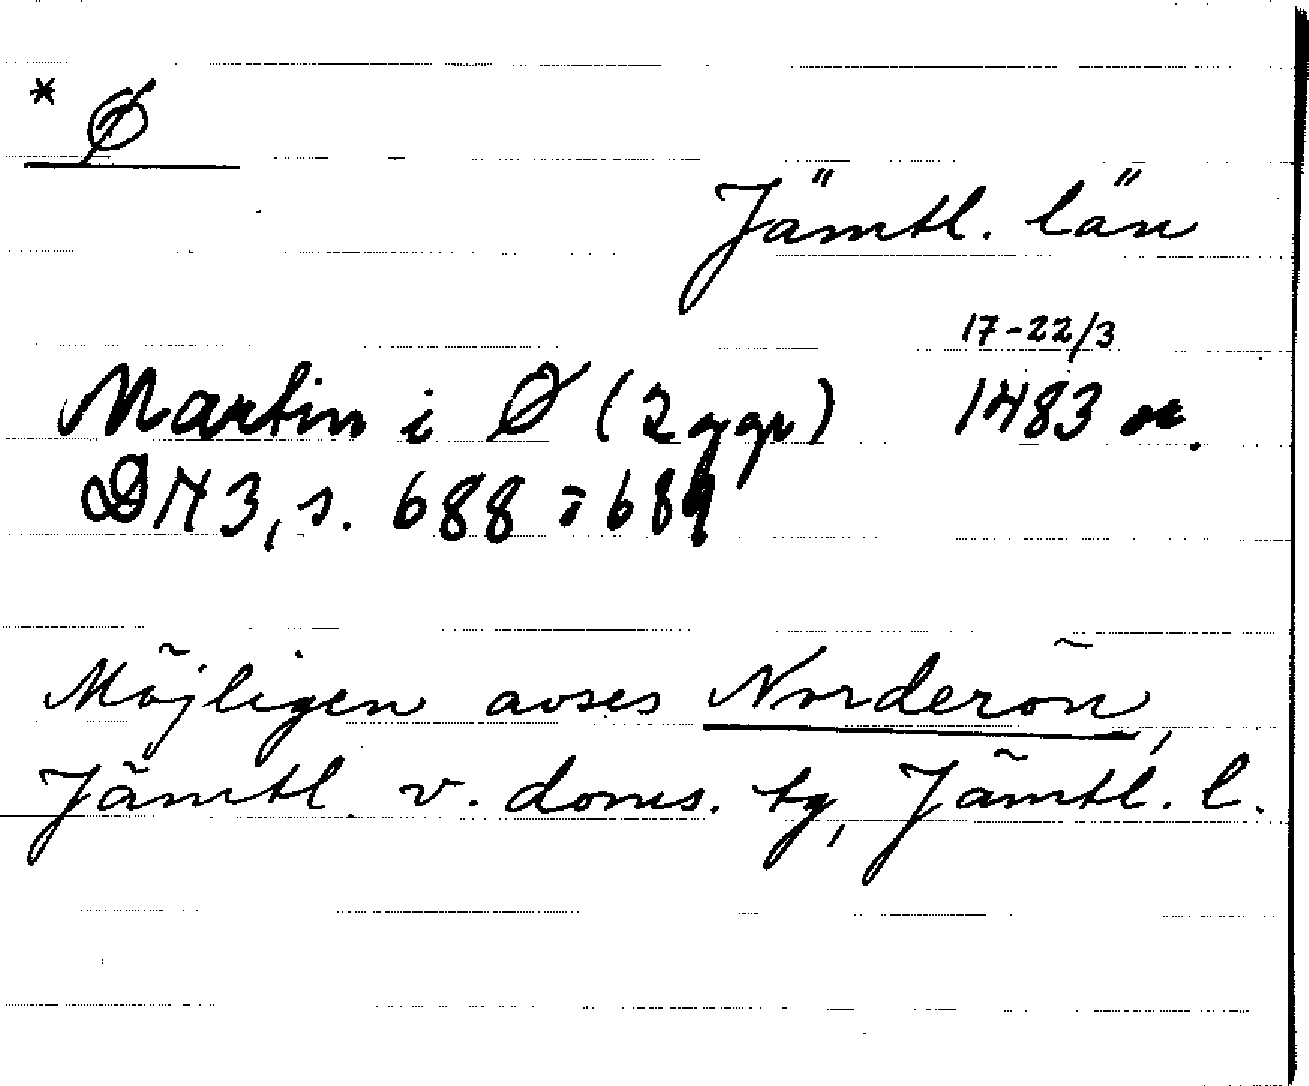 * Ø
Jämtl. län
17-22/3
Martin i Ø (2 ggr) 1483 or.
DN 3, s. 688 o 689
Möjligen avses Norderön,
Jämtl. v. doms. tg, Jämtl. l.